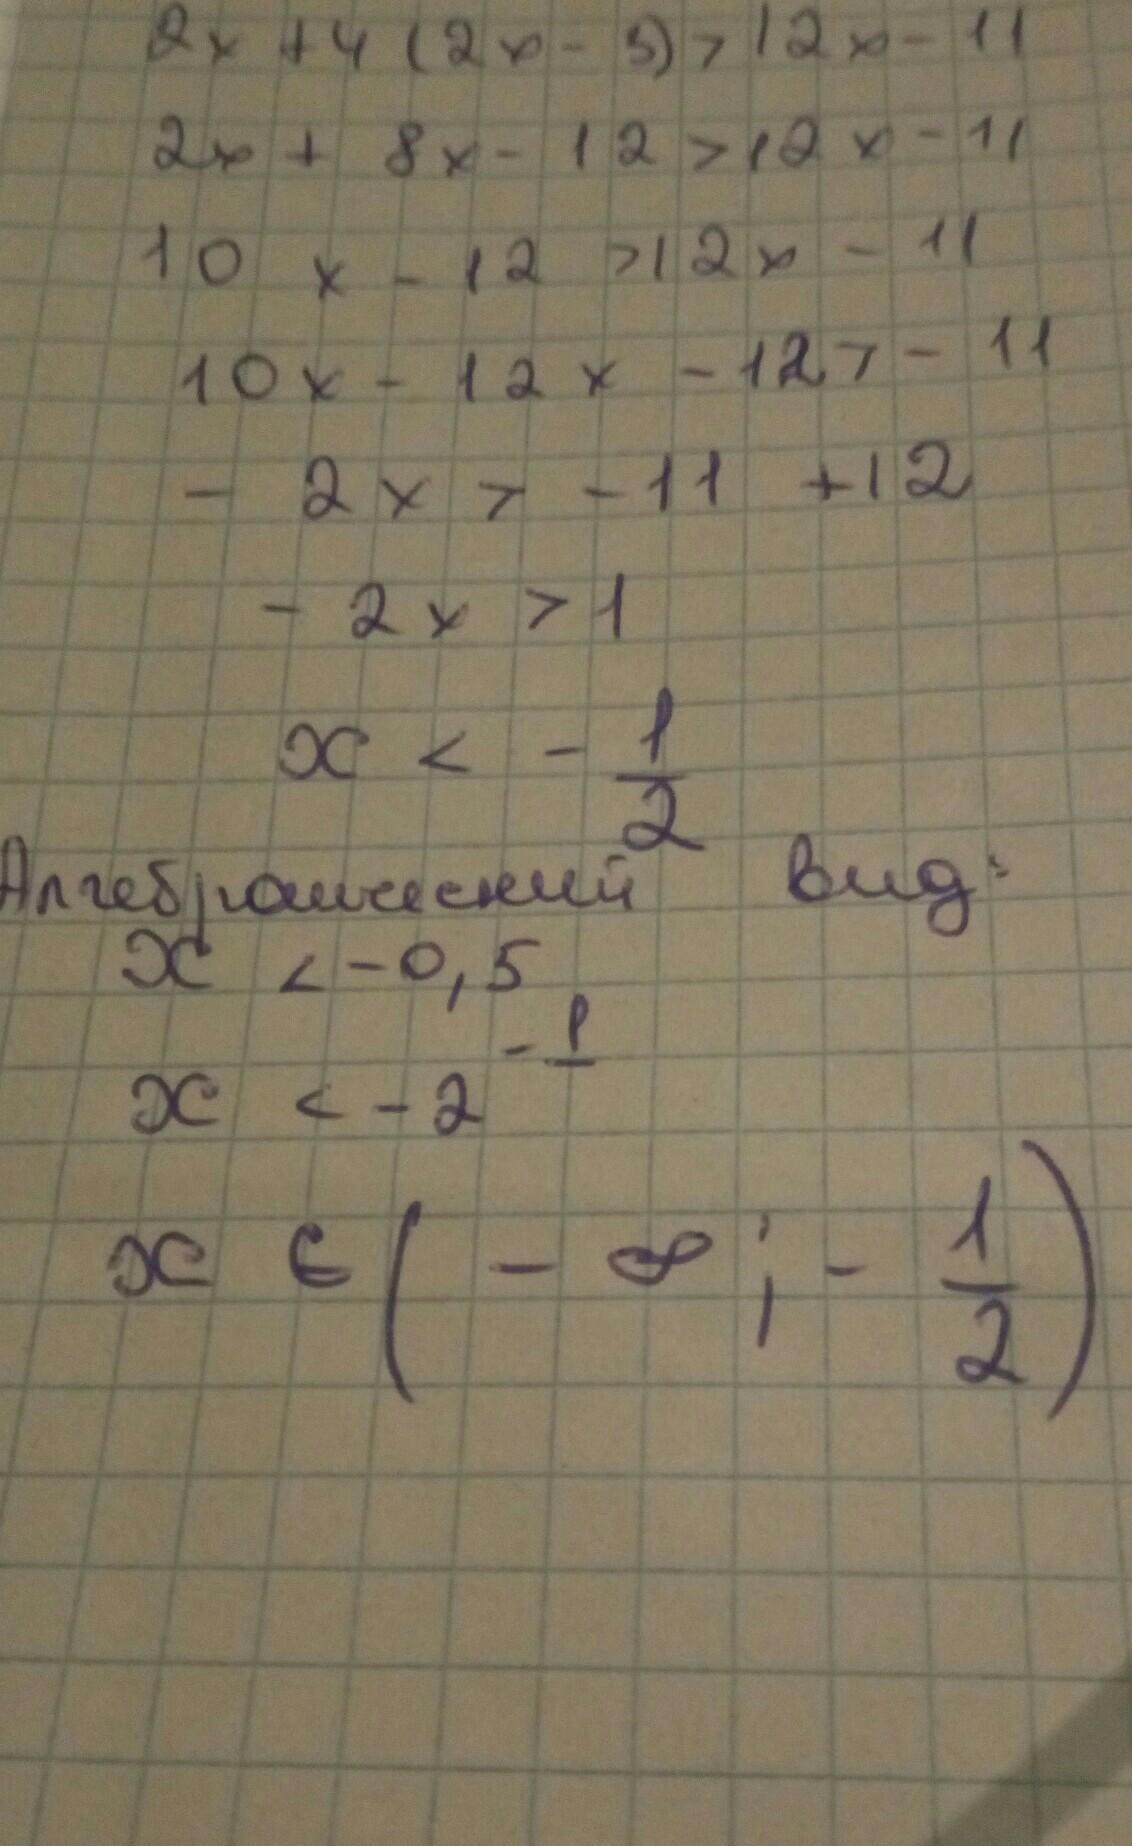 2x + 4 (2x - 3) > 12x - 11
2x + 8x - 12 > 12x - 11
10x - 12 > 12x - 11
10x - 12x - 12 > - 11
- 2x > - 11 + 12
- 2x > 1
x < - 1/2
Алгебраический вид:
x < -0,5
x < -2^{-1}
x ∈ ( - ∞ ; - 1/2 )